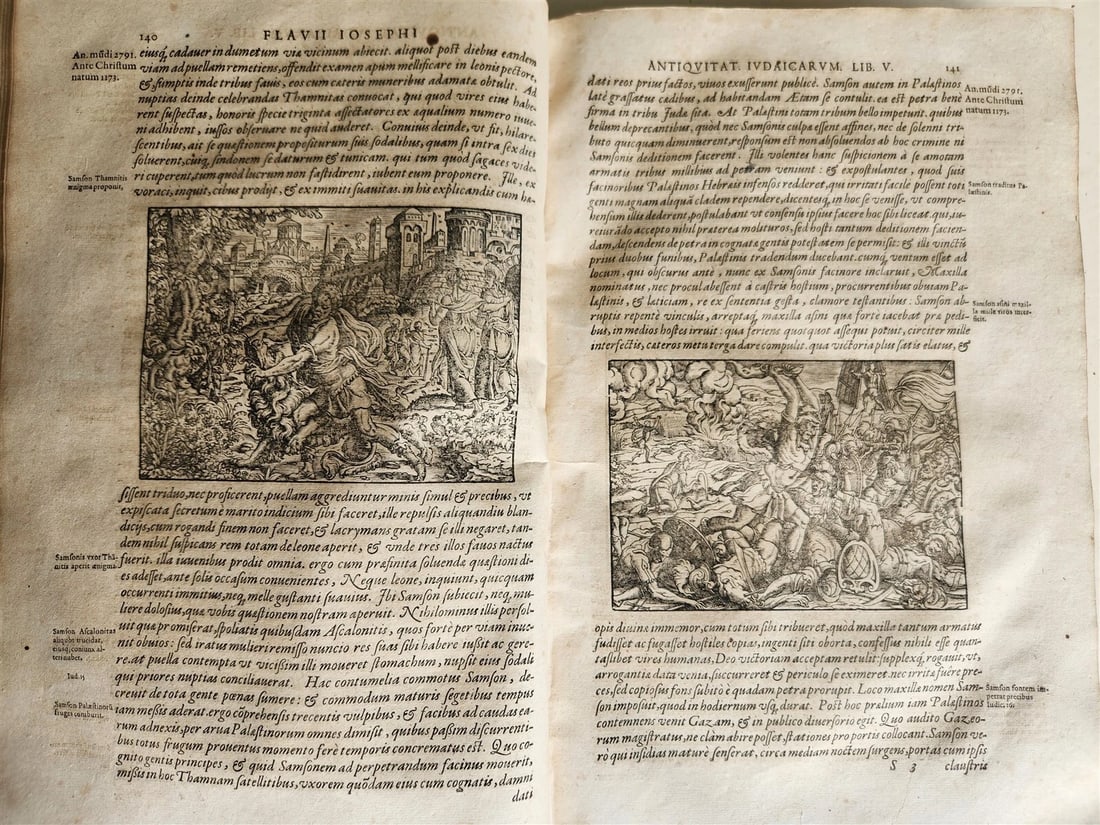 140
FLAVII IOSEPHI
An. mūdi 2791.
Ante Christum
natum 1173.
eiusq́, cadauer in dumetum viæ vicinum abiecit. aliquot post diebus eandem
viam ad puellam remetiens, offendit examen apum mellificare in leonis pectore,
& sumptis inde tribus fauis, eos cum cæteris muneribus adamatæ obtulit. Ad
nuptias deinde celebrandas Thamnitas conuocat, qui quod vires eius habe-
rent suspectas, honoris specie triginta assectatores ex æqualium numero iuue-
ni adhibent, iussos obseruare ne quid auderet. Conuiuus deinde, vt fit, hilare-
scentibus, ait se quæstionem propositurum suis sodalibus, quam si intra sex dies
soluerent, cuiq́, sindonem se daturum & tunicam. qui tum quod sagaces vide-
ri cuperent, tum quod lucrum non fastidirent, iubent eum proponere. Ille, ex
voraci, inquit, cibus prodijt, & ex immiti suauitas. in his explicandis cum hæ-
Samson Thamnitis
ænigma proponit,
sissent triduo, nec proficerent, puellam aggrediuntur minis simul & precibus, vt
expiscata secretum è marito indicium sibi faceret, ille repulsis aliquandiu blan-
dicijs, cum rogandi finem non faceret, & lacrymans gratam se illi negaret, tan-
dem nihil suspicans rem totam de leone aperit, & vnde tres illos fauos nactus
fuerit. illa iuuenibus prodit omnia. ergo cum præfinita soluendæ quæstioni di-
es adesset, ante solis occasum conuenientes, Neque leone, inquiunt, quicquam
occurrenti immitius, neq́, melle gustanti suauius. Ibi Samson subiecit, neq́, mu-
liere dolosius, quæ vobis quæstionem nostram aperuit. Nihilominus illis persol-
uit quæ promiserat, spoliatis quibusdam Ascalonitis, quos fortè per viam inue-
nit obuios: sed iratus mulieri remisso nuncio res suas sibi habere iussit ac gere-
re. at puella contempta vt vicissim illi moueret stomachum, nupsit eius sodali
qui priores nuptias conciliauerat. Hac contumelia commotus Samson, de-
creuit de tota gente pœnas sumere: & commodum maturis segetibus tempus
iam messis aderat. ergo cōprehensis trecentis vulpibus, & facibus ad caudas ea-
rum adnexis, per arua Palæstinorum omnes dimisit, quibus passim discurrenti-
bus totus frugum prouentus momento ferè temporis concrematus est. Quo co-
gnito gentis principes, & quid Samsonem ad perpetrandum facinus mouerit,
missis in hoc Thamnam satellitibus, vxorem quōdam eius cum cognatis, damni
dati
Samsonis vxor Thā-
nitis aperit ænigma
Samson Ascalonitas
aliquot trucidat,
eiusq́; coniunx al-
teri nubet.
Iud. 15
Samson Palæstinorū
fruges comburit.
ANTIQVITAT. IVDAICARVM. LIB. V.
141
dati reos prius factos, viuos exusserunt publicè. Samson autem in Palæstinos
latè grassatus cædibus, ad habitandam Ætam se contulit. ea est petra benè
firma in tribu Iudæ sita. At Palæstini totam tribum bello impetunt. quibus
bellum deprecantibus, quod nec Samsonis culpæ essent affines, nec de solenni tri-
buto quicquam diminuerent, responsum est non absoluendos ab hoc crimine ni
Samsonis deditionem facerent. Illi volentes hanc suspicionem à se amotam
armatis tribus millibus ad petram veniunt: & expostulantes, quod suis
facinoribus Palæstinos Hebræis infensos redderet, qui irritati facilè possent toti
genti magnam aliquā cladem rependere, dicentesq́, in hoc se venisse, vt compre-
hensum illis dederent, postulabant vt consensu ipsius facere hoc sibi liceat. qui, iu-
reiurādo accepto nihil præterea molituros, sed hosti tantum deditionem facien-
dam, descendens de petra in cognatæ gentis potestatem se permisit: & illi vinctū
prius duobus funibus, Palæstinis tradendum ducebant. cumq́, ventum esset ad
locum, qui obscurus antè, nunc ex Samsonis facinore inclaruit, Maxilla
nominatus, nec procul abessent à castris hostium, procurrentibus obuiam Pa-
læstinis, & læticiam, re ex sententia gesta, clamore testantibus: Samson ab-
ruptis repentè vinculis, arreptaq́, maxilla asini quæ fortè iacebat præ pedi-
bus, in medios hostes irruit: qua feriens quotquot assequi potuit, circiter mille
interfectis, cæteros metu terga dare compulit. qua victoria plus satis elatus, &
An. mūdi 2791.
Ante Christum
natum 1173.
Samson traditus Pa-
læstinis.
Samson asini maxil-
la mille viros inter-
ficit.
opis diuinæ immemor, cum totum sibi tribueret, quòd maxilla tantum armatus
fudisset ac fugasset hostiles copias, ingenti siti oborta, confessus nihil esse quan-
taslibet vires humanas, Deo victoriam acceptam retulit: supplexq́, rogauit, vt,
arrogantiæ data venia, succurreret & periculo se eximeret. nec irritæ fuere pre-
ces, sed copiosus fons subitò è quadam petra prorupit. Loco maxillæ nomen Sam-
son imposuit, quod in hodiernum vsq́, durat. Post hoc prælium iam Palæstinos
contemnens venit Gazam, & in publico diuersorio egit. Quo audito Gazæo-
rum magistratus, ne clàm abire posset, stationes pro portis collocant. Samson ve-
rò qui insidias maturè senserat, circa mediam noctem surgens, portas cum ipsis
Samson fontem im-
petrat precibus
Iudic. 16:
S 3
claustris